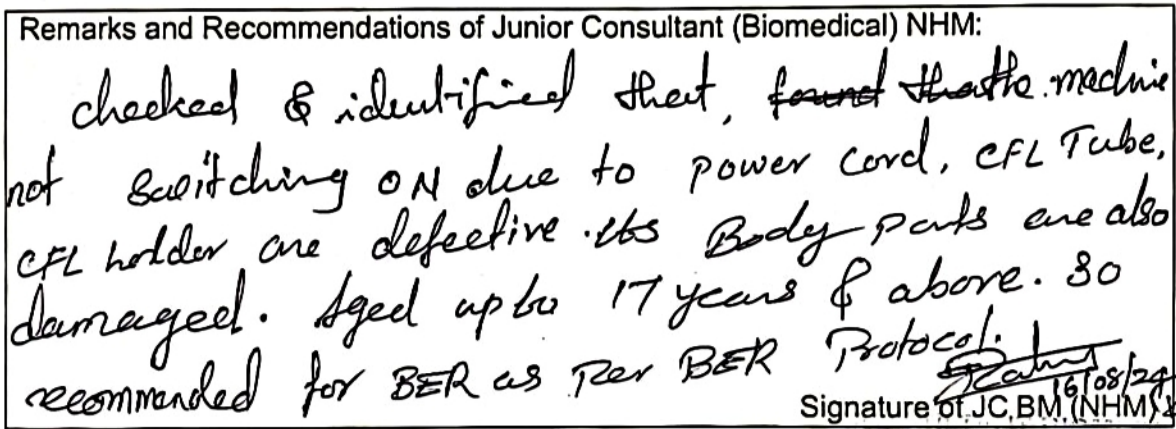 Remarks and Recommendations of Junior Consultant (Biomedical) NHM:
checked & identified that, found that the machine
not switching ON due to power cord, CFL Tube,
CFL holder are defective. Its Body parts are also
damaged. Aged up to 17 years & above. So
recommended for BER as Per BER Protocol.
16/08/24
Signature of JC,BM,(NHM)